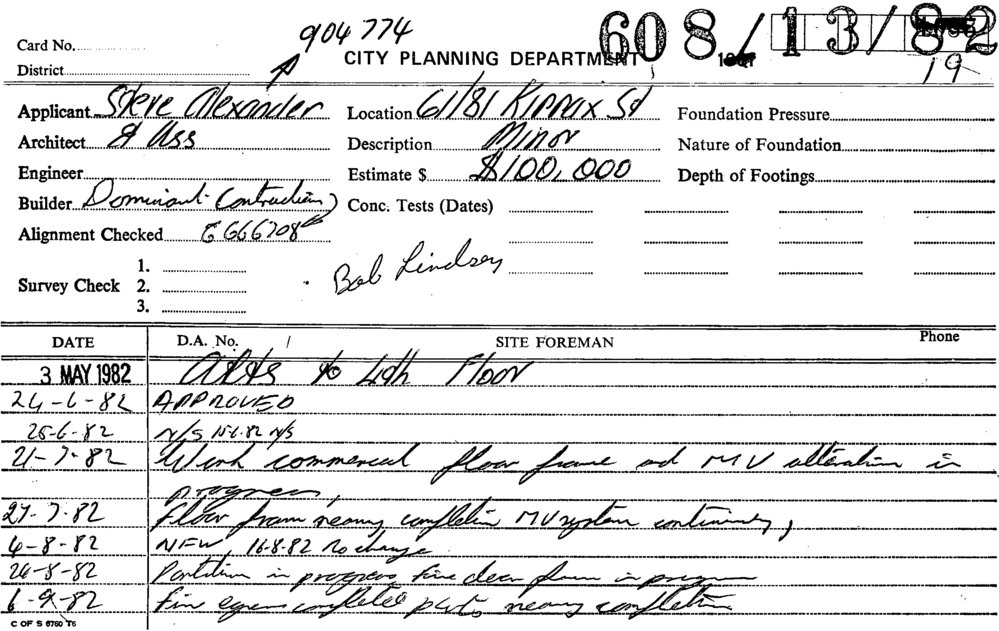 904 774
608/13/82
Card No.
CITY PLANNING DEPARTMENT
19
District
Applicant Steve Alexander
Location 61/81 Kippax St
Foundation Pressure
Architect & Ass
Description Minor
Nature of Foundation
Engineer
Estimate $ $100,000
Depth of Footings
Builder Dominant Contractions
Conc. Tests (Dates)
Alignment Checked 6666708
Bob Lindsey
1.
Survey Check 2.
3.
DATE
D.A. No. /
SITE FOREMAN
Phone
3 MAY 1982 Alts to 4th Floor
24-6-82 APPROVED
25-6-82 N/S 15.6.82 N/S
21-7-82 Work commenced floor frame and MV alteration in
progress,
27-7-82 Floor frame nearing completion MV system continuing,
4-8-82 NFW, 16-8.82 No change
26-8-82 Partition in progress fire door frame in progress
6-9-82 Fire egress completed parts nearing completion
C OF S 6760 T6